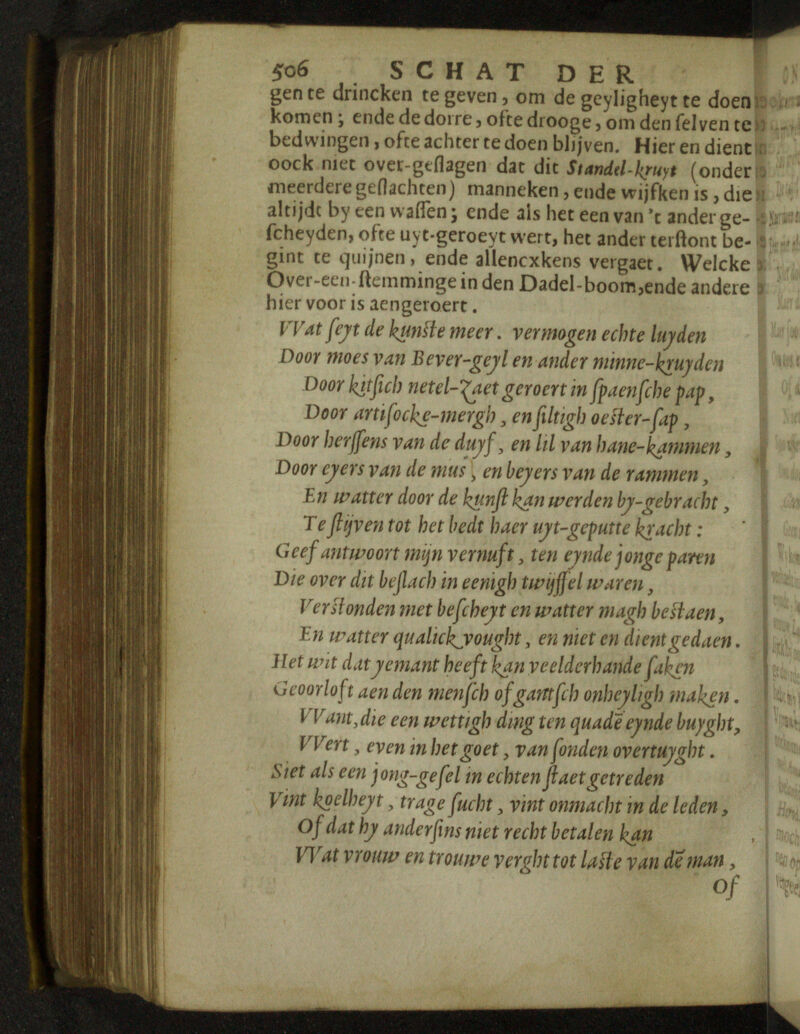 506 SCHAT DER
gen te drincken te geven, om de geyligheyt te doen
komen; ende de dorre, ofte drooge, om den selven te
bedwingen, ofte achter te doen blijven. Hier en dient
oock niet over-geslagen dat dit Standel-kruyt (onder
meerdere geslachten) manneken, ende wijfken is, die
altijdt by een wassen; ende als het een van 't ander ge-
scheyden, ofte uyt-geroeyt wert, het ander terstont be-
gint te quijnen, ende allencxkens vergaet. Welcke
Over-een-stemminge in den Dadel-boom, ende andere
hier voor is aengeroert.
Wat feyt de kunste meer. vermogen echte luyden
Door moes van Bever-geyl en ander minne-kruyden
Door kitsich netel-zaet geroert in spaensche pap,
Door artisocke-mergh, en siltigh oester-sap,
Door herssens van de duyf, en lil van hane-kammen,
Door eyers van de mus, en beyers van de rammen,
En watter door de kunst kan werden by-gebracht,
Te stijven tot het bedt haer uyt-geputte kracht:
Geef antwoort mijn vernuft, ten eynde jonge paren
Die over dit beslach in eenigh twijffel waren,
Verstonden met bescheyt en watter magh bestaen,
En watter qualick vought, en niet en dient gedaen.
Het wit dat yemant heeft kan veelderhande saken
Geoorloft aen den mensch of gantsch onheyligh maken.
Want, die een wettigh ding ten quadē eynde buyght,
Wert, even in het goet, van sonden overtuyght.
Siet als een jong-gesel in echten staet getreden
Vint koelheyt, trage sucht, vint onmacht in de leden,
Of dat hy andersins niet recht betalen kan
Wat vrouw en trouwe verght tot laste van dē man,
Of